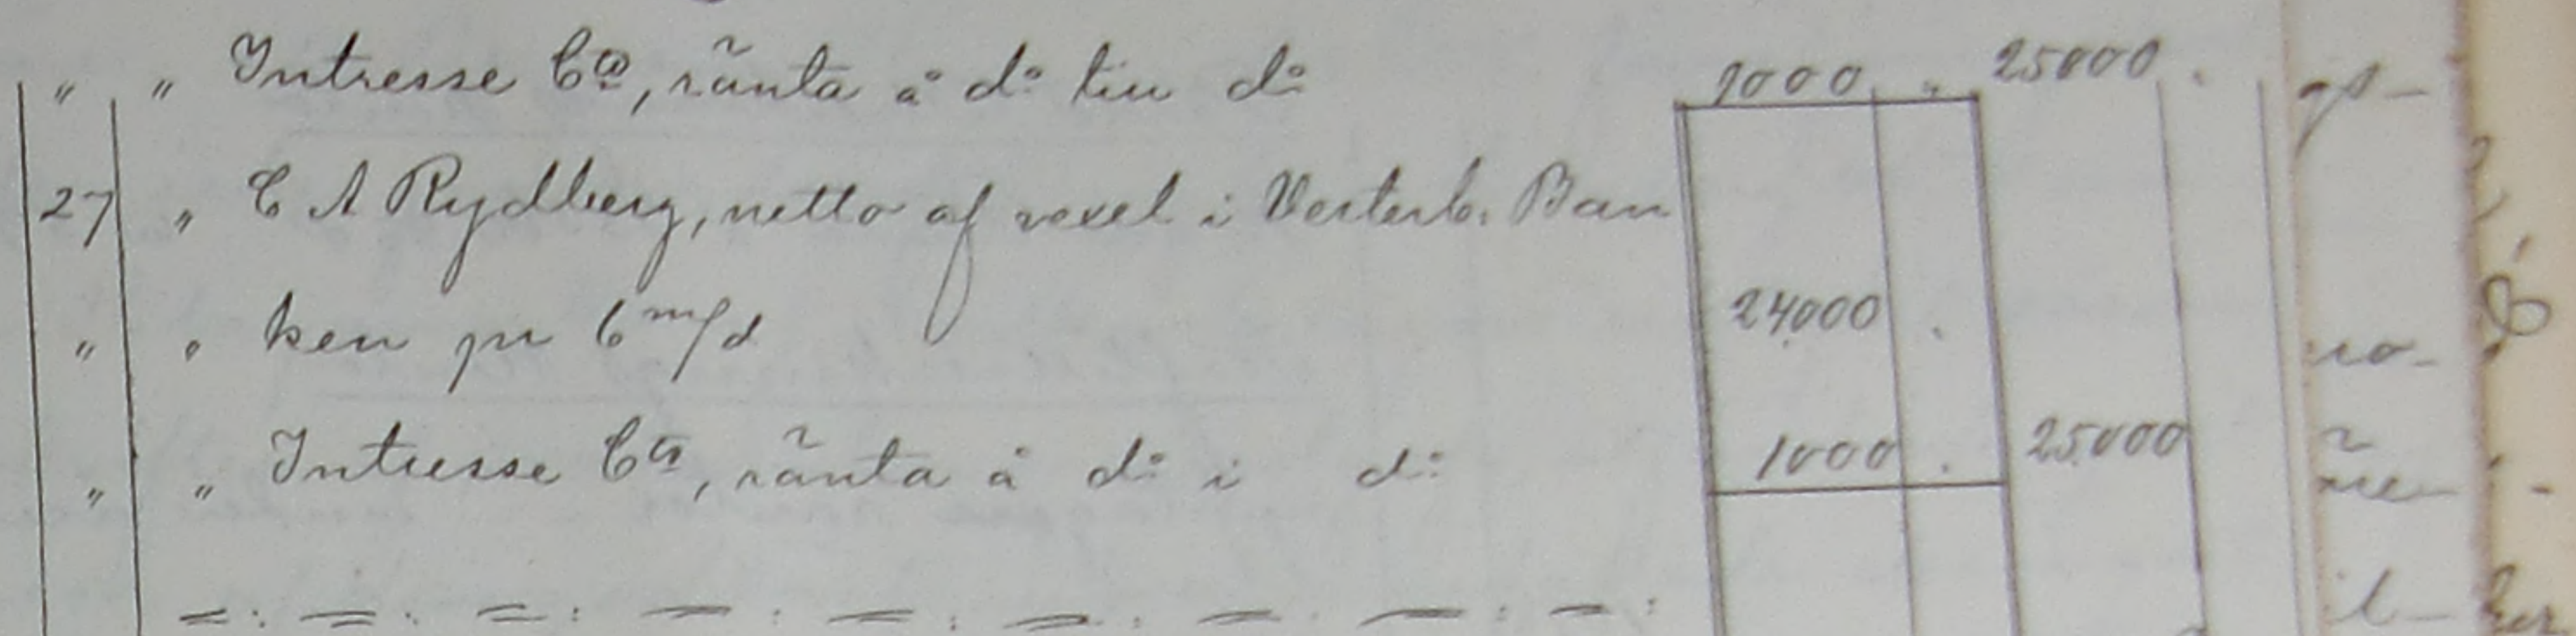 " " Intresse Cto, ränta å do: till do: 1000 . 25000 .
27 " C A Rydberg, netto af vexel i Vesterb. Ban
" " ken pr 6 m/d 24000 .
" " Intresse Cto, ränta å do: i do: 1000 . 25000